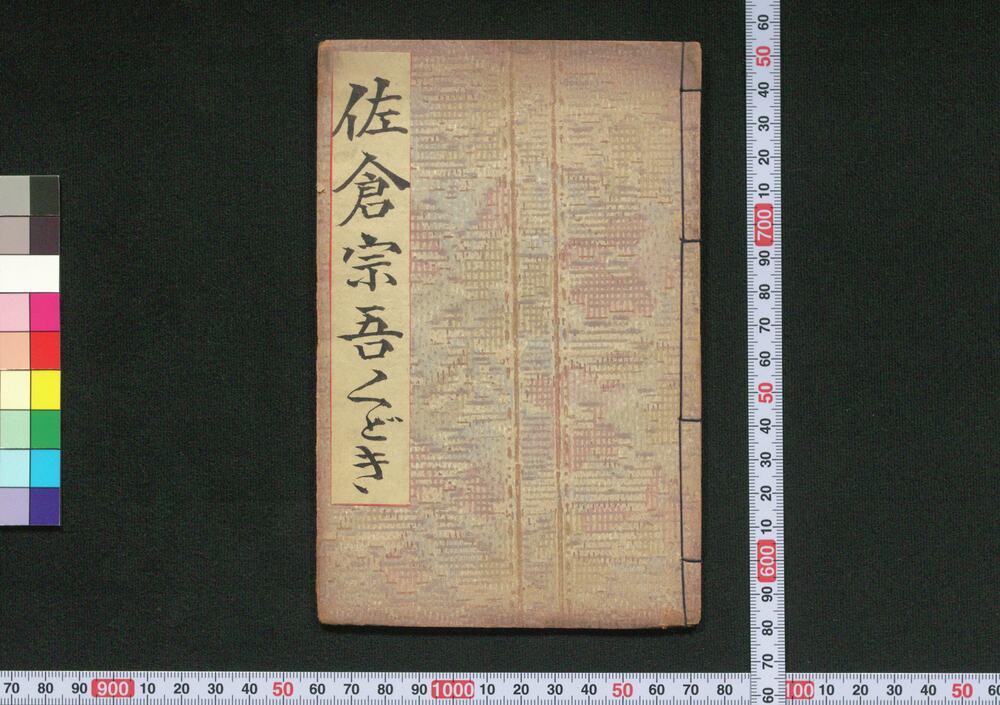 佐倉宗吾くどき
60
50
40
30
20
10
700
90
80
70
60
50
40
30
20
10
600
90
80
70
60
70 80 90 900 10 20 30 40 50 60 70 80 90 1000 10 20 30 40 50 60 70 80 100 10 20 30 40 50 60